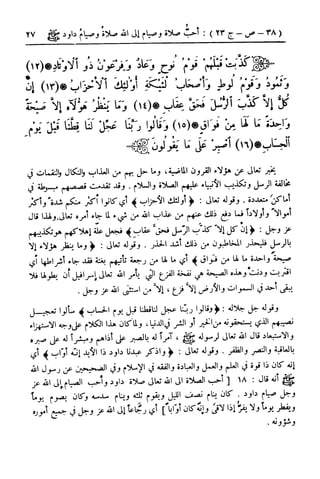 (٣٨ - ص - ج ٢٣) : أحبُّ صلاة وصيام إلى الله صلاةُ وصيامُ داود ﷺ ٢٧
كَذَّبَتْ قَبْلَهُمْ قَوْمُ نُوحٍ وَعَادٌ وَفِرْعَوْنُ ذُو ٱلْأَوْتَادِ (١٢)
وَثَمُودُ وَقَوْمُ لُوطٍ وَأَصْحَابُ لْـَٔيْكَةِ أُولَٰئِكَ ٱلْأَحْزَابُ (١٣) إِن
كُلٌّ إِلَّا كَذَّبَ ٱلرُّسُلَ فَحَقَّ عِقَابِ (١٤) وَمَا يَنظُرُ هَٰؤُلَاءِ إِلَّا صَيْحَةً
وَاحِدَةً مَّا لَهَا مِن فَوَاقٍ (١٥) وَقَالُوا رَبَّنَا عَجِّل لَّنَا قِطَّنَا قَبْلَ يَوْمِ
ٱلْحِسَابِ (١٦) ٱصْبِرْ عَلَىٰ مَا يَقُولُونَ
يخبر تعالى عن هؤلاء القرون الماضية، وما حل بهم من العذاب والنكال والنقمات في
مخالفة الرسل وتكذيب الأنبياء عليهم الصلاة والسلام. وقد تقدمت قصصهم مبسوطة في
أماكن متعددة. وقوله تعالى: ﴿أولئك الأحزاب﴾ أي كانوا أكثر منكم وأشد قوة وأكثر
أموالاً وأولاداً فما دفع ذلك عنهم من عذاب الله من شيء لما جاء أمره تعالى ولهذا قال
عز وجل: ﴿إن كل إلا كذب الرسل فحق عقاب﴾ فجعل علة إهلاكهم هو تكذيبهم
بالرسل فليحذر المخاطبون من ذلك أشد الحذر. وقوله تعالى: ﴿وما ينظر هؤلاء إلا
صيحة واحدة ما لها من فواق﴾ أي ما لها من رجعة تأتيهم بغتة فقد جاء أشراطها أي
اقتربت ودنت وهذه الصيحة هي نفخة الفزع التي يأمر الله تعالى إسرافيل أن يطولها فلا
يبقى أحد في السموات والأرض إلا فزع، إلا من استثنى الله عز وجل.
وقوله جل جلاله: ﴿وقالوا ربنا عجل لنا قطنا قبل يوم الحساب﴾ سألوا تعجيل
نصيبهم الذي يستحقونه من الخير أو الشر في الدنيا، ولما كان هذا الكلام على وجه الاستهزاء
والاستبعاد قال الله تعالى لرسوله ﷺ، آمراً له بالصبر على أذاهم ومبشراً له على صبره
بالعاقبة والنصر والظفر. وقوله تعالى: ﴿واذكر عبدنا داود ذا الأيد إنه أواب﴾ أي
إنه كان ذا قوة في العلم والعمل والعبادة والفقه في الإسلام وفي الصحيحين عن رسول الله
ﷺ أنه قال: ١٨ [ أحب الصلاة الى الله تعالى صلاة داود وأحب الصيام إلى الله عز
وجل صيام داود. كان ينام نصف الليل ويقوم ثلثه وينام سدسه وكان يصوم يوماً
ويفطر يوماً ولا يفرُّ إذا لاقى وإنه كان أواباً] أي رجّاعاً إلى الله عز وجل في جميع أموره
وشؤونه.